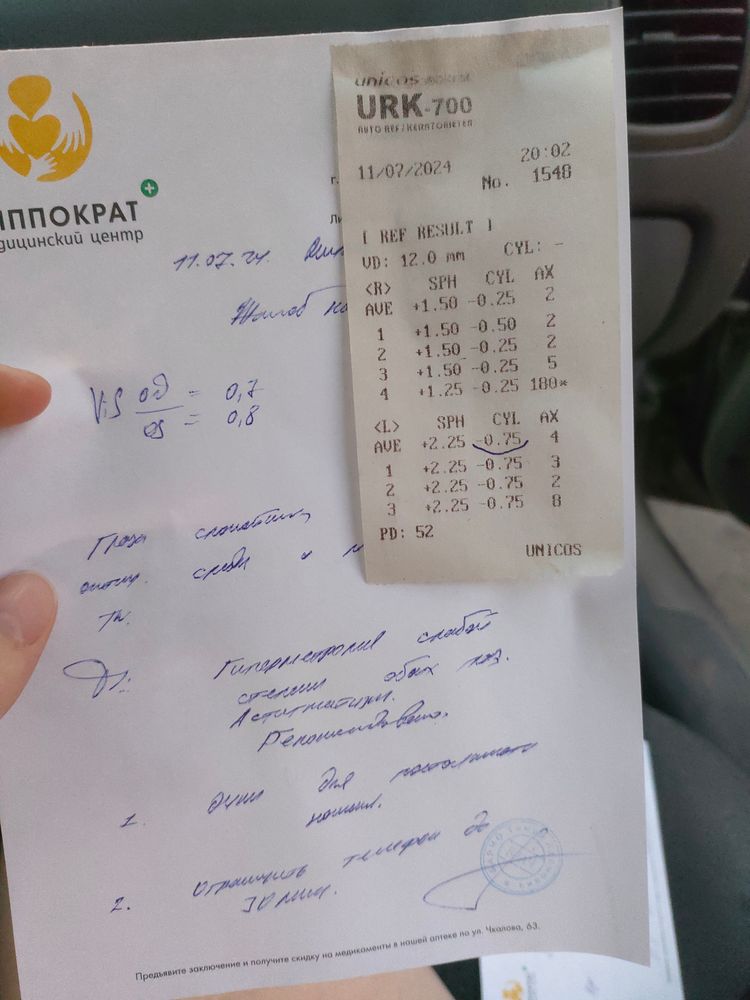 ИППОКРАТ
дицинский центр
г.
Ли
11.07.24.
Жалоб
Vis OD = 0,7
OS = 0,8
Глаза спокойны,
оптич. среды и
Ds: Гиперметропия слабой
степени обоих глаз.
Астигматизм.
Рекомендовано.
1. очки для постоянного
ношен.
2. Ограничить телефон до
30 мин.
Предъявите заключение и получите скидку на медикаменты в нашей аптеке по ул. Чкалова, 63.
unicos
URK-700
AUTO REF/KERATOMETER
11/07/2024 20:02
No. 1548
[ REF RESULT ]
VD: 12.0 mm CYL: -
<R> SPH CYL AX
AVE +1.50 -0.25 2
1 +1.50 -0.50 2
2 +1.50 -0.25 2
3 +1.50 -0.25 5
4 +1.25 -0.25 180*
<L> SPH CYL AX
AVE +2.25 -0.75 4
1 +2.25 -0.75 3
2 +2.25 -0.75 2
3 +2.25 -0.75 8
PD: 52
UNICOS